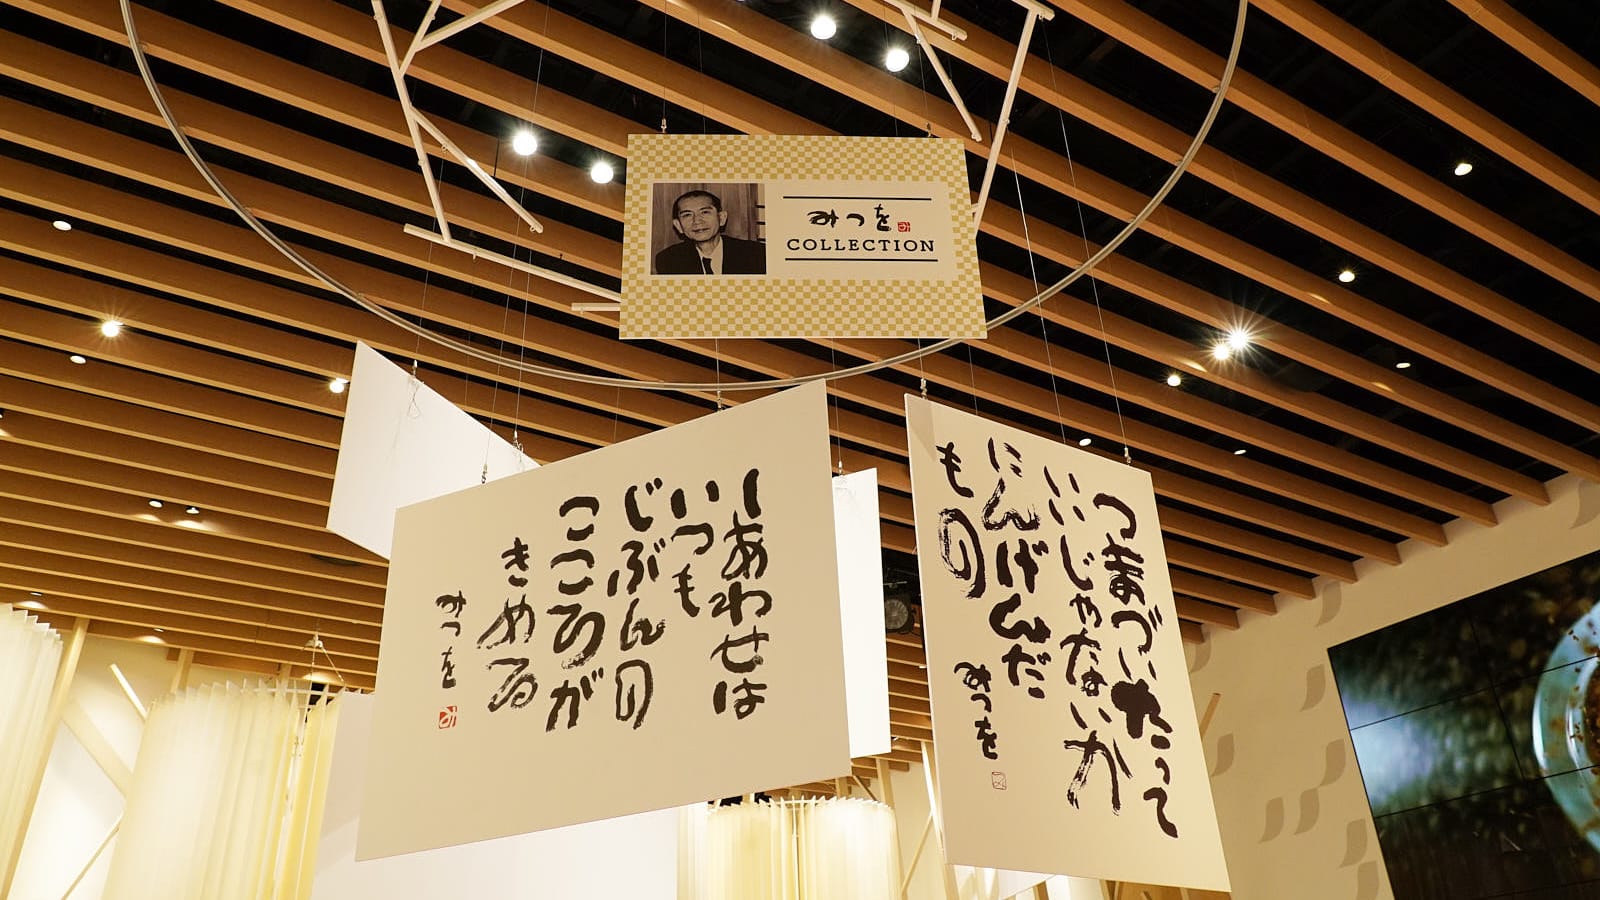 みつを
み
COLLECTION
しあわせは
いつも
じぶんの
こころが
きめる
みつを
み
つまづいたって
いいじゃないか
にんげんだ
もの
みつを